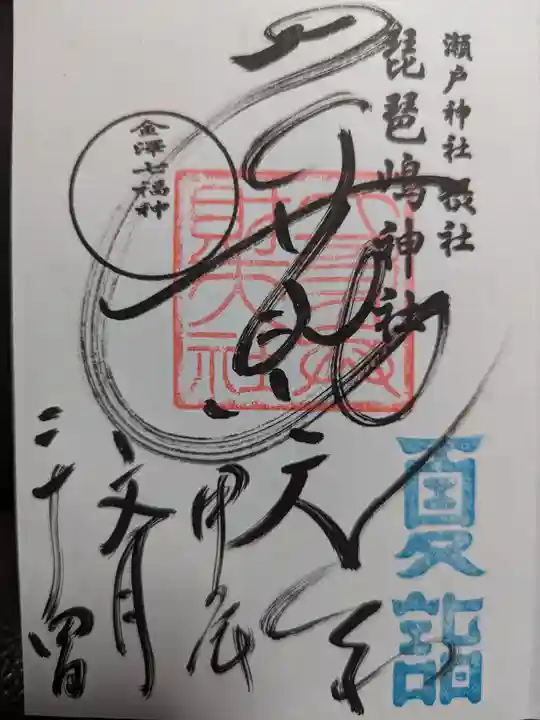 瀬戸神社摂社
琵琶嶋神社
金澤七福神
弁財天
夏詣
甲辰
文月
二十四日